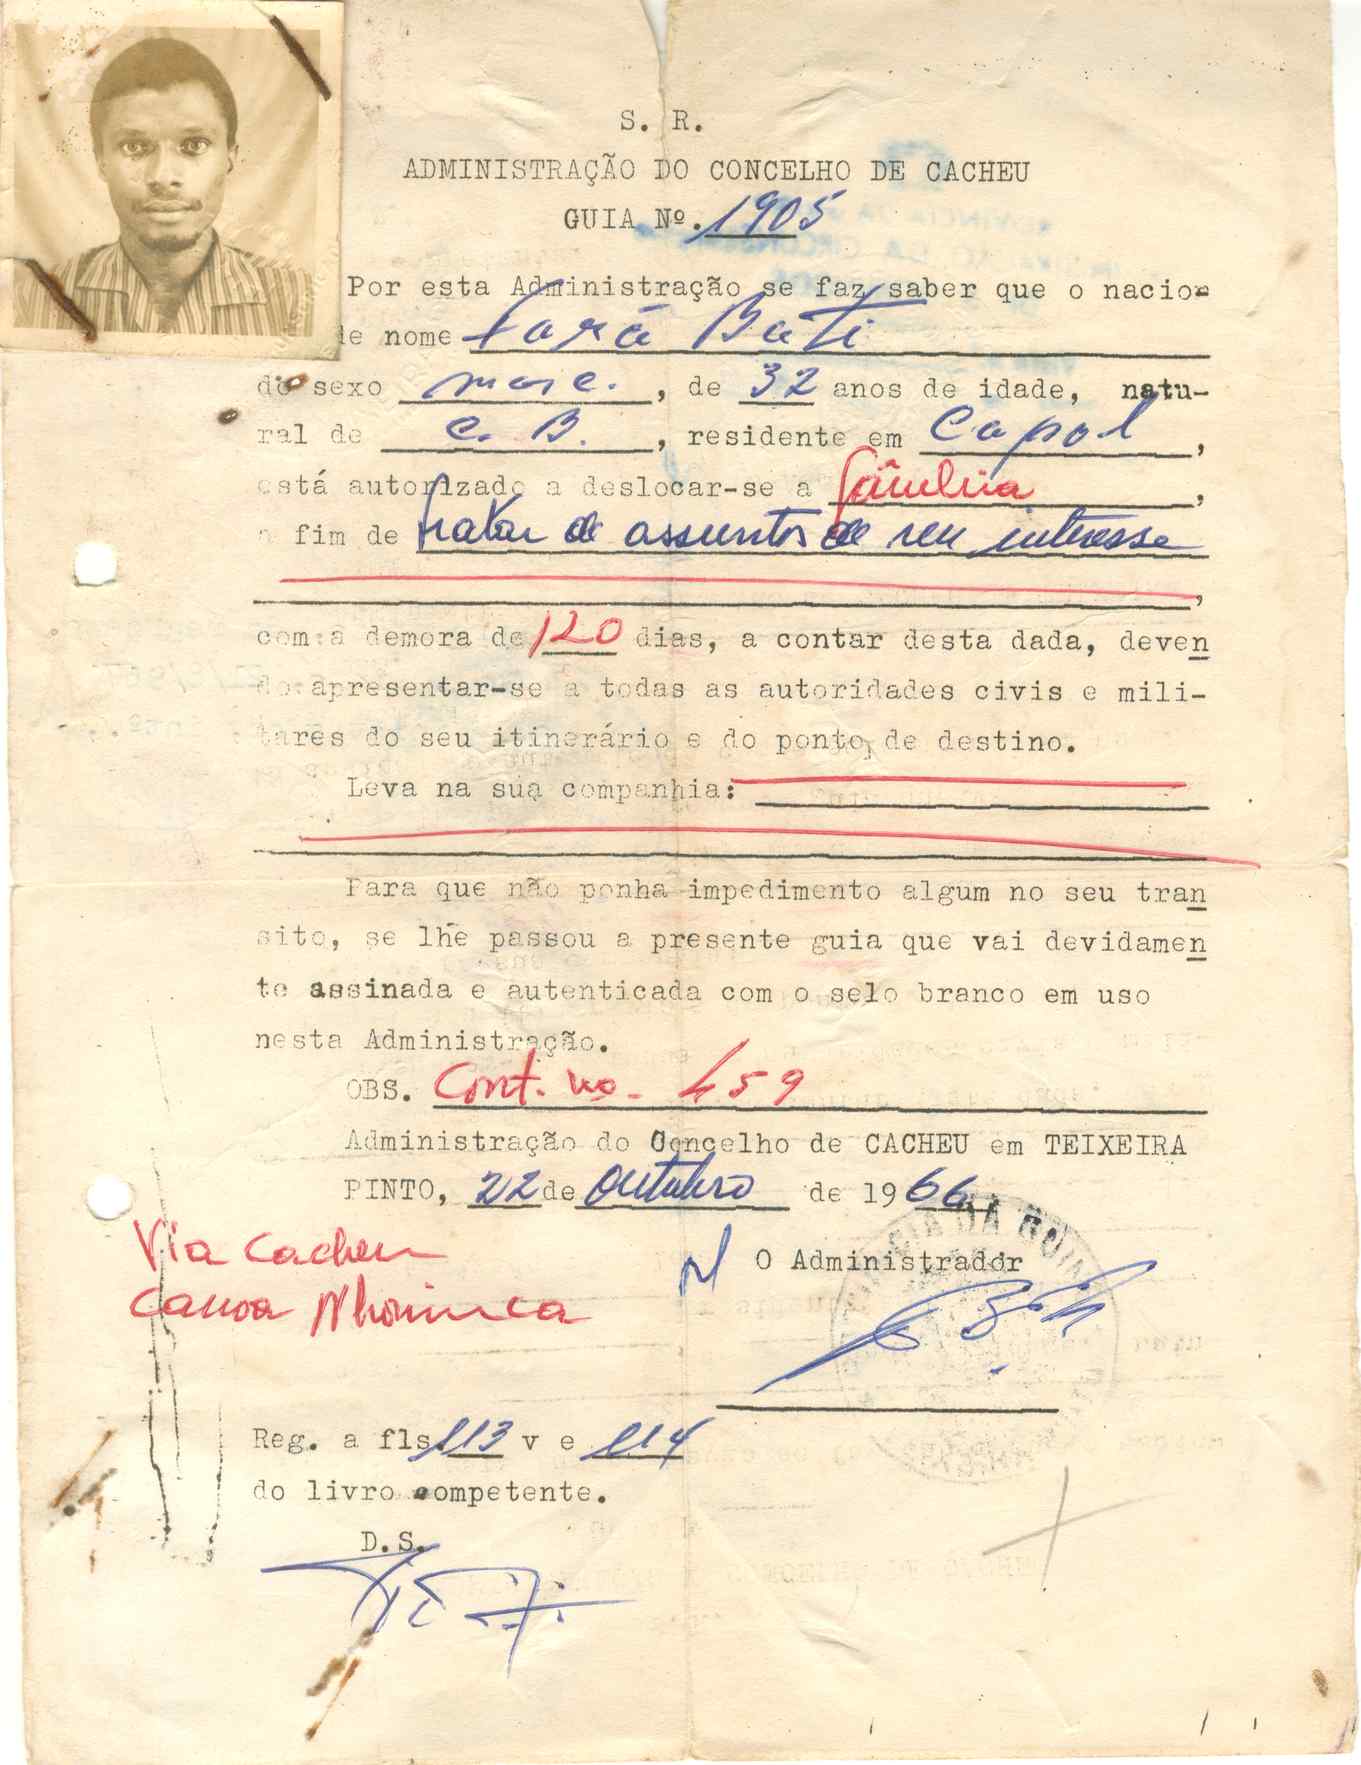 S. R.
ADMINISTRAÇÃO DO CONCELHO DE CACHEU
GUIA Nº. 1905
Por esta Administração se faz saber que o nacio-
de nome Bati
do sexo masc. , de 32 anos de idade, natu-
ral de C. B. , residente em Capol ,
está autorizado a deslocar-se a Gâmbia ,
a fim de tratar de assuntos de seu interesse
,
com a demora de 120 dias, a contar desta dada, deven
do apresentar-se a todas as autoridades civis e mili-
tares do seu itinerário e do ponto de destino.
Leva na sua companhia:
Para que não ponha impedimento algum no seu tran
sito, se lhe passou a presente guia que vai devidamen
te assinada e autenticada com o selo branco em uso
nesta Administração.
OBS. Cont. no. 459
Administração do Concelho de CACHEU em TEIXEIRA
PINTO, 22 de Outubro de 1966
Via Cacheu
Canoa Nhominca
O Administrador
Reg. a fls. 113 v e 114
do livro competente.
D.S.